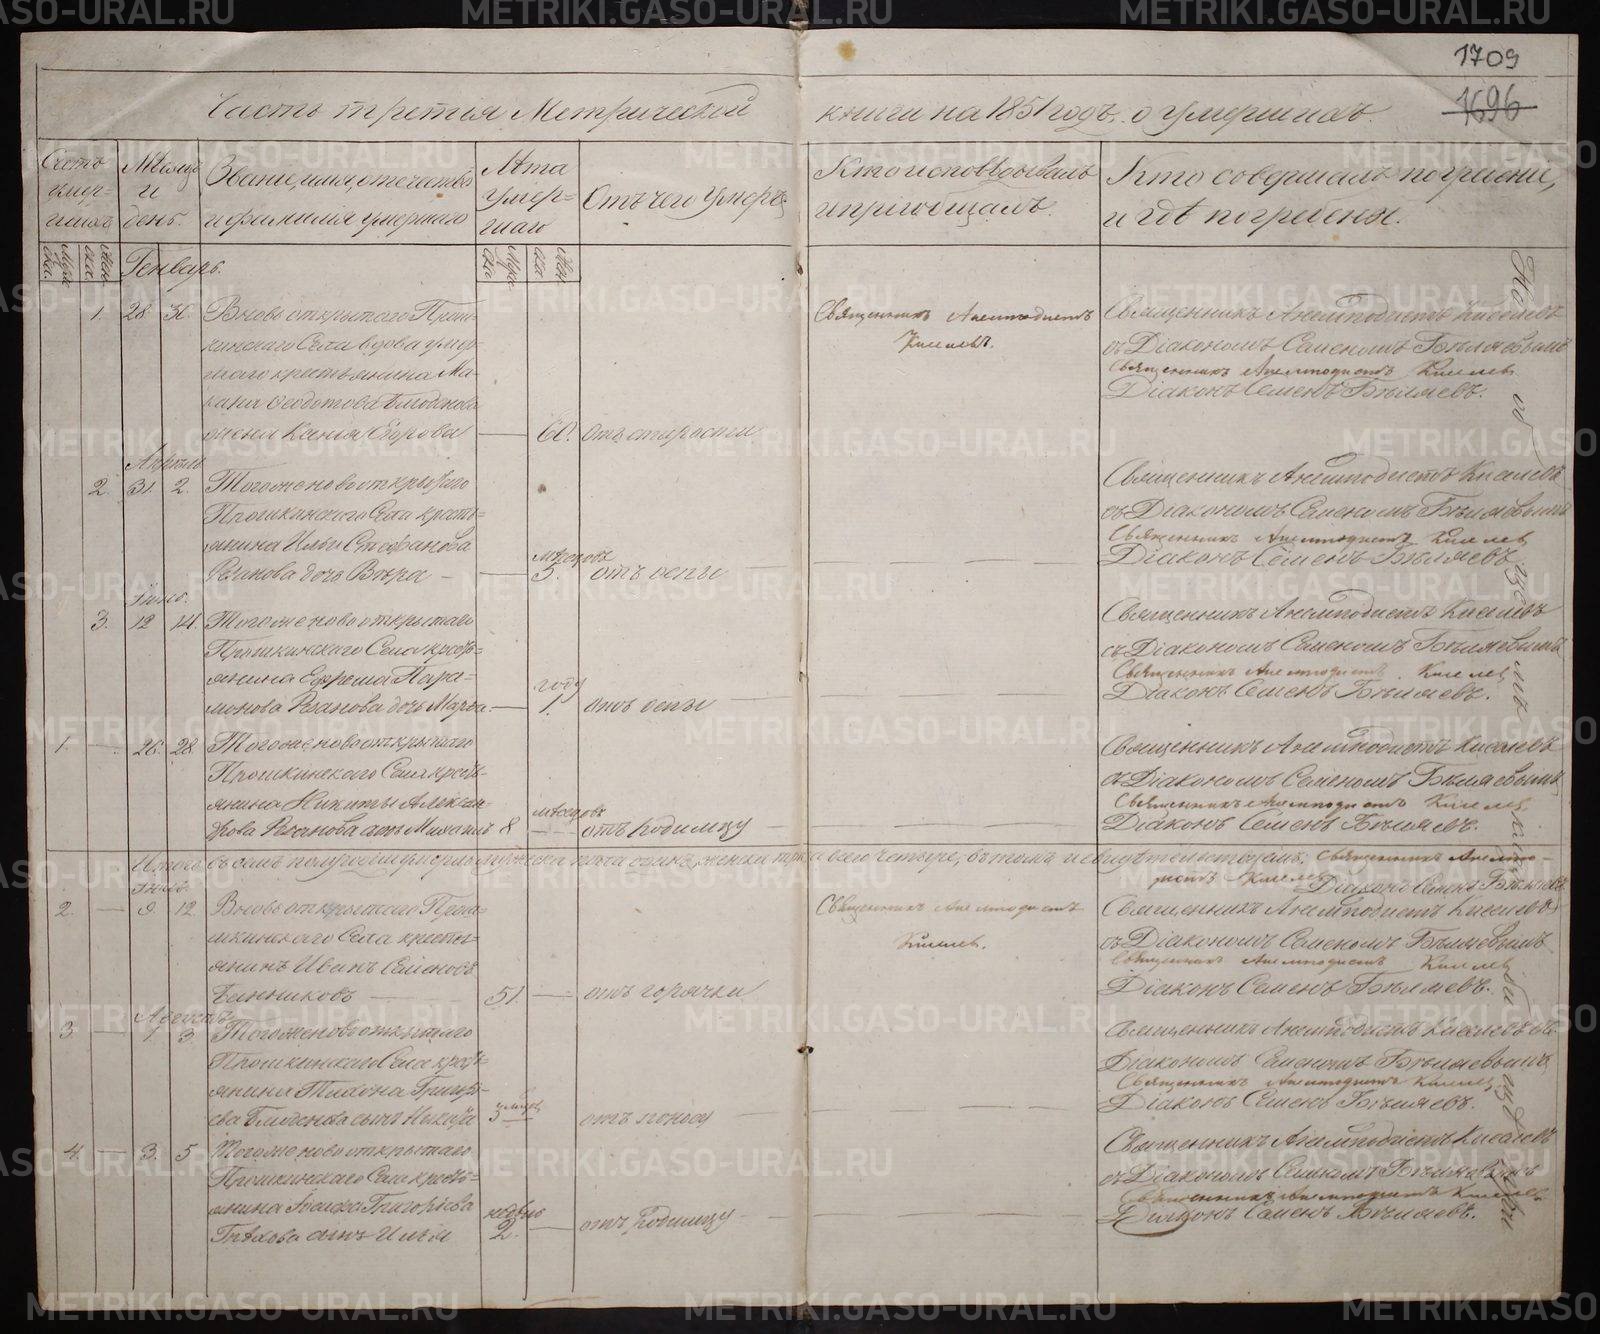 1709
1696
Часть третiя Метрической книги на 1851 годъ, о умершихъ.
Счетъ умер-шихъ
Мѣсяцъ и день.
Званiе, имя, отечество и фамилiя умершаго
Лѣта умер-шаго
Отъ чего умеръ
Кто исповѣдывалъ и прiобщалъ.
Кто совершалъ погребенiе, и гдѣ погребены.
Муж
ска.
Жен
ска.
Муж
ска
Жен
ска
Генварь.
1. 28 30. Вновь открытаго Прош-
кинскаго Села вдова умер-
шаго крестьянина
жена Ксенiя Егорова — 60. отъ старости
Священникъ Анемподистъ
Киселевъ.
Священникъ Анемподистъ Киселевъ
съ Дiакономъ Семеномъ Бѣляевымъ
Священникъ Анемподистъ Киселев
Дiаконъ Семенъ Бѣляевъ.
Апрѣль
2. 31. 2. Того же новооткрытаго
Прошкинскаго Села кресть-
янина Ильи Стефанова
дочь Вѣра — мѣсяцовъ 5. отъ оспы
Священникъ Анемподистъ Киселевъ
съ Дiакономъ Семеномъ Бѣляевымъ
Священникъ Анемподистъ Киселев
Дiаконъ Семенъ Бѣляевъ
Iюнь.
3. 12 14. Того же новооткрытаго
Прошкинскаго Села кресть-
янина Ефрема Пара-
монова Резанова дочь Марѳа — году 1. отъ оспы
Священникъ Анемподистъ Киселевъ
съ Дiакономъ Семеномъ Бѣляевымъ
Священникъ Анемподистъ Киселев
Дiаконъ Семенъ Бѣляевъ.
1. — 26. 28. Того же новооткрытаго
Прошкинскаго Села кресть-
янина Никиты Алексан-
дрова Резанова сынъ Михаилъ 8 мѣсяцовъ — отъ родимцу
Священникъ Анемподистъ Киселевъ
съ Дiакономъ Семеномъ Бѣляевымъ
Священникъ Анемподистъ Киселев
Дiаконъ Семенъ Бѣляевъ.
Итого въ семъ полугодiи умерло мужеска пола одинъ, женска три а всего четыре, въ томъ и свидѣтельствуемъ. Священникъ Анемпо-
дистъ Киселев Дiаконъ Семенъ Бѣляевъ
2. — 9. 12. Вновь открытаго Прош-
кинскаго Села кресть-
янинъ Иванъ Семеновъ
Банниковъ — 51. — отъ горячки
Священникъ Анемподистъ
Киселев.
Священникъ Анемподистъ Киселевъ
съ Дiакономъ Семеномъ Бѣляевымъ
Священникъ Анемподистъ Киселев
Дiаконъ Семенъ Бѣляевъ.
Августъ
3. — 1. 3. Того же новооткрытаго
Прошкинскаго Села кресть-
янина Григорь-
ева сынъ 3 отъ поносу
Священникъ Анемподистъ Киселевъ съ
Дiакономъ Семеномъ Бѣляевымъ
Священникъ Анемподистъ Киселев
Дiаконъ Семенъ Бѣляевъ.
4. — 3. 5. Того же новооткрытаго
Прошкинскаго Села кресть-
янина Григорiева
Бѣлова сынъ Илья недѣль 2. — отъ родимцу
Священникъ Анемподистъ Киселевъ
съ Дiакономъ Семеномъ Бѣляевымъ
Священникъ Анемподистъ Киселев
Дiаконъ Семенъ Бѣляевъ.
На об
METRIKI.GASO-URAL.RU